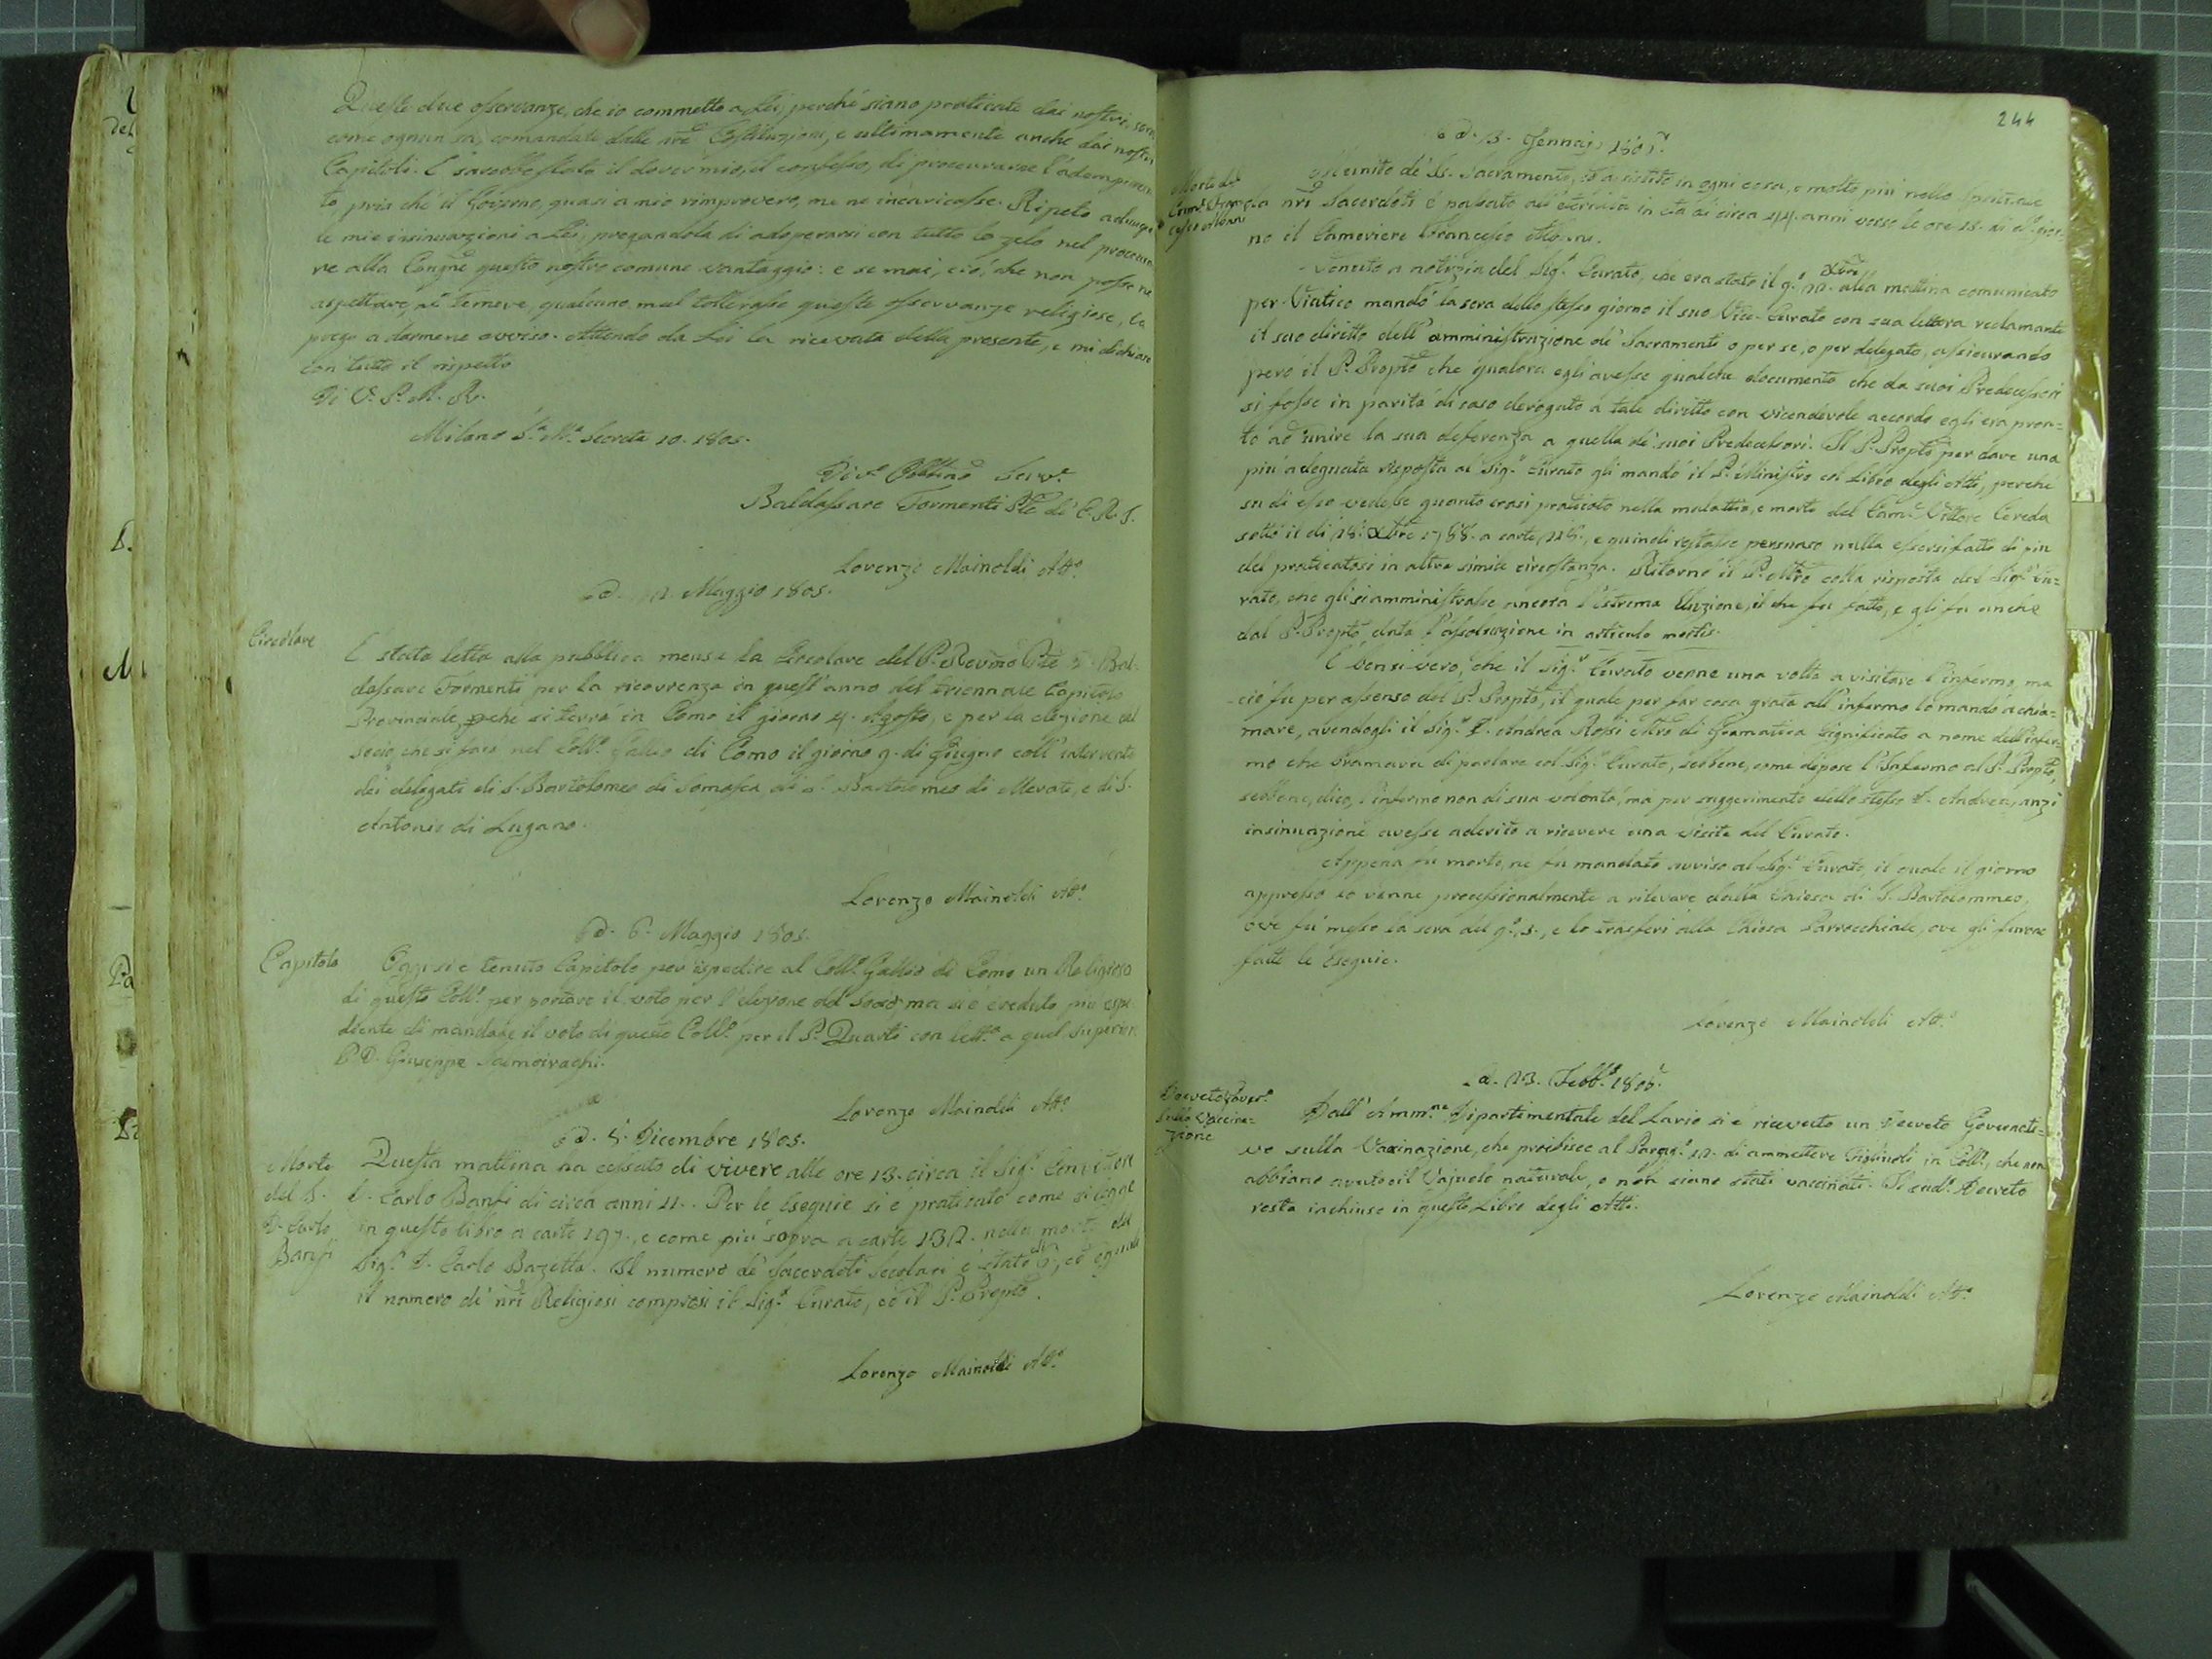 Queste due osservanze, che io commetto a Lei, perché siano praticate dai nostri, sono
come ognun sa, comandate dalle nre Costituzioni, e ultimamente anche dai nostri
Capitoli. E sarebbe stato il dover mio, il confesso, di procurarne l'adempimen
to, pria che il Governo, quasi a mio rimprovero, me ne incaricasse. Ripeto adunque
le mie insinuazioni a Lei, pregandola di adoperarsi con tutto lo zelo nel procura
re alla Congne questo nostro comune vantaggio: e se mai, ciò, che non posso né
aspettare, né temere, qualcuno mal tollerasse queste osservanze religiose, la
prego a darmene avviso. Attendo da Lei la ricevuta della presente, e mi dichiaro
con tutto il rispetto
Di V. P. M. R.
Milano S.a M.a Secreta 10. 1805.
Serv.
Baldassare Formenti Pte de' C. R. S.
Lorenzo Mainoldi Att.o
Maggio 1805.
Circolare
È stata letta alla pubblica mensa la Circolare del P. Revmo Pte D. Bal-
dassare Formenti per la ricorrenza in quest'anno del triennale Capitolo
Provinciale, che si terrà in Como il giorno 4. Agosto, e per la elezione del
socio, che si farà nel Coll.o Gallio di Como il giorno 9. di Giugno coll'intervento
dei delegati di S. Bartolomeo di Somasca, di S. Bartolomeo di Merate, e di S.
Antonio di Lugano.
Lorenzo Mainoldi Att.o
A d. 6. Maggio 1805.
Capitolo
Oggi si è tenuto Capitolo per ispedire al Coll.o Gallio di Como un Religioso
di questo Coll.o per portare il voto per l'elezione del Socio ma si è creduto più espe
diente di mandare il voto di questo Coll.o per il P. Quarti con lett.a a quel Superiore
P. D. Giuseppe Salmoiraghi.
Lorenzo Mainoldi Att.o
A d. 5. Dicembre 1805.
Morte
del S.
D. Carlo
Banfi
Questa mattina ha cessato di vivere alle ore 13. circa il Sig.r Convittore
D. Carlo Banfi di circa anni 11. Per le Esequie si è praticato come si legge
in questo libro a carte 197., e come più sopra a carte 132. nella morte del
Sig.r D. Carlo Bazetta. Il numero de' Sacerdoti Secolari è stato di 6., ed eguale
il numero di nri Religiosi compresi il Sig.r Curato, ed il P. Propto.
Lorenzo Mainoldi Att.o
244
A d. 3. Gennajo
Morte del
Cam.e Fran-
cesco Albani
Munito de' SS. Sacramenti, ed assistito in ogni cosa, e molto più nello spirituale
da nri Sacerdoti è passato all'eternità in età di circa 44. anni verso le ore 18. di d.o gior-
no il Cameriere Francesco Albani.
Venuto a notizia del Sig.r Curato, che era stato il g.o 10. Xbre alla mattina comunicato
per Viatico mandò la sera dello stesso giorno il suo Vice-Curato con sua lettera reclamante
il suo diritto dell'amministrazione de' Sacramenti o per se, o per delegato, assicurando
però il P. Propto che qualora egli avesse qualche documento che da suoi Predecessori
si fosse in parità di caso derogato a tale diritto con vicendevole accordo egli era pron=
to ad unire la sua deferenza a quella de' suoi Predecessori. Il P. Propto per dare una
più adeguata risposta al Sig.r Curato gli mandò il P. Ministro col Libro degli Atti, perché
su di esso vedesse quanto erasi praticato nella malattia, e morte del Cam.e Vittore Cereda
sotto il dì 18. Xbre 1788. a carte 118., e quindi restasse persuaso nulla essersi fatto di più
del praticatosi in altra simile circostanza. Ritornò il P. Mtro colla risposta del Sig.r Cu=
rato, che gli si amministrasse ancora l'Estrema Unzione, il che fu fatto, e gli fu anche
dal P. Propto data l'assoluzione in articulo mortis.
È bensì vero, che il Sig.r Curato venne una volta a visitare l'infermo, ma
ciò fu per assenso del P. Propto, il quale per far cosa grata all'infermo lo mandò a chia=
mare, avendogli il Sig.r D. Andrea Rossi Mro di Gramatica significato a nome dell'infer=
mo che bramava di parlare col Sig.r Curato, sebbene, come depose l'Infermo al P. Propto,
sebbene, dico, l'infermo non di sua volontà, ma per suggerimento dello stesso D. Andrea, anzi
insinuazione avesse aderito a ricevere una visita del Curato.
Appena fu morto, ne fu mandato avviso al Sig.r Curato, il quale il giorno
appresso lo venne processionalmente a rilevare dalla Chiesa di S. Bartolommeo,
ove fu messo la sera del g.o 3., e lo trasferì alla Chiesa Parrocchiale, ove gli furono
fatte le Esequie.
Lorenzo Mainoldi Att.o
A d. 13. Febb.o 1806.
Decreto Gover.o
sulla Vaccina-
zione
Dall'Amm.ne Dipartimentale del Lario si è ricevuto un Decreto Governati=
vo sulla Vaccinazione, che proibisce al Parag.o 10. di ammettere Figliuoli in Coll.o, che non
abbiano avuto il Vajuolo naturale, o non siano stati vaccinati. Il sud.o Decreto
resta inchiuso in questo Libro degli Atti.
Lorenzo Mainoldi Att.o